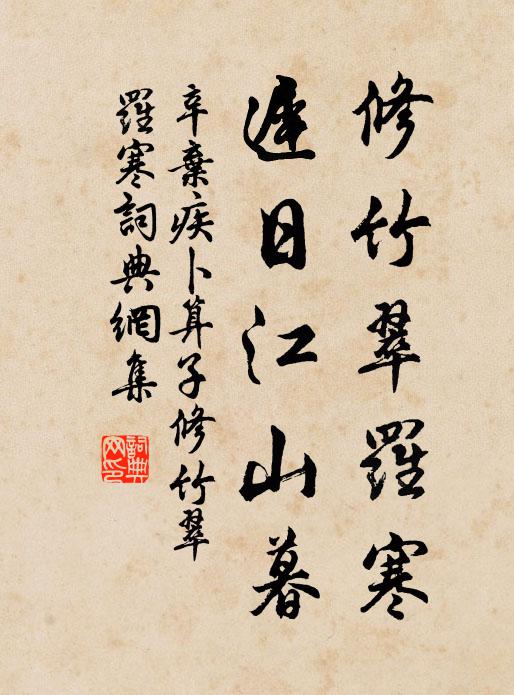 修竹翠羅寒
遲日江山暮
辛棄疾卜算子修竹翠
羅寒詞典網集
詞典网印